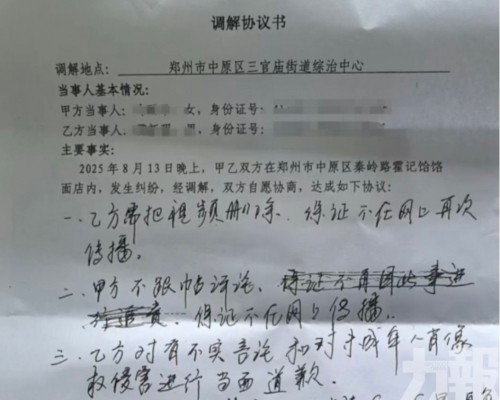 调解协议书
调解地点: 郑州市中原区三官庙街道综治中心
当事人基本情况:
甲方当事人: 女, 身份证号:
乙方当事人: 男, 身份证号:
主要事实:
2025年8月13日晚上, 甲乙双方在郑州市中原区秦岭路霍记饸饹
面店内, 发生纠纷, 经调解, 双方自愿协商, 达成如下协议:
一、乙方需把视频删除、保证不在网上再次
传播。
二、甲方不跟帖评论, 保证不再因此事进
保证不在网上传播.
三、乙方对有不实言论和对未成年人肖像
权侵害进行当面道歉.
力报